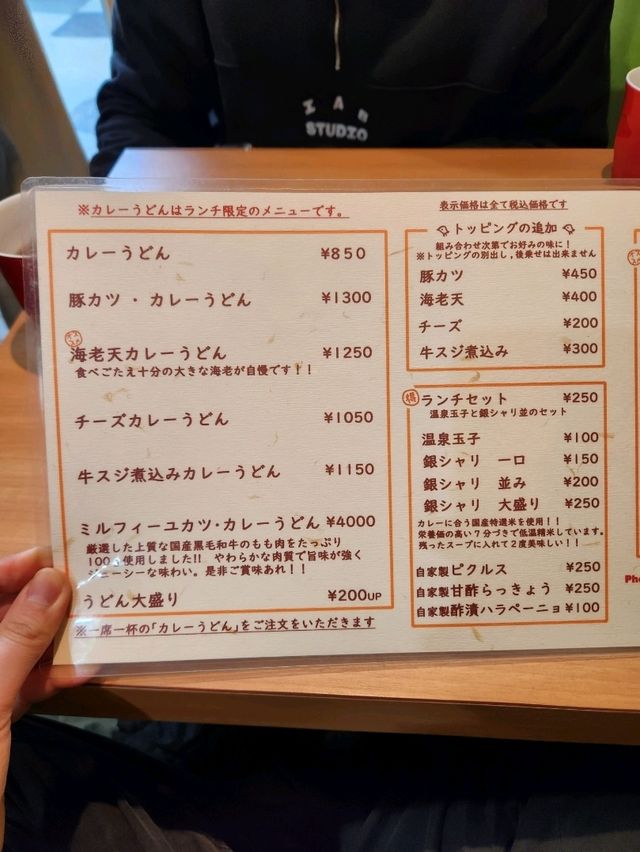 IAN
STUDIO
※カレーうどんはランチ限定のメニューです。
カレーうどん ¥850
豚カツ・カレーうどん ¥1300
海老天カレーうどん ¥1250
食べごたえ十分の大きな海老が自慢です！！
チーズカレーうどん ¥1050
牛スジ煮込みカレーうどん ¥1150
ミルフィーユカツ・カレーうどん ¥4000
厳選した上質な国産黒毛和牛のもも肉をたっぷり
100g使用しました!! やわらかな肉質で旨味が強く
ジューシーな味わい。是非ご賞味あれ！！
うどん大盛り ¥200UP
※一席一杯の「カレーうどん」をご注文をいただきます
表示価格は全て税込価格です
トッピングの追加
組み合わせ次第でお好みの味に！
※トッピングの別出し,後乗せは出来ません
豚カツ ¥450
海老天 ¥400
チーズ ¥200
牛スジ煮込み ¥300
得 ランチセット ¥250
温泉玉子と銀シャリ並のセット
温泉玉子 ¥100
銀シャリ 一口 ¥150
銀シャリ 並み ¥200
銀シャリ 大盛り ¥250
カレーに合う国産特選米を使用！！
栄養価の高い7分づきで低温精米しています。
残ったスープに入れて2度美味しい！！
自家製ピクルス ¥250
自家製甘酢らっきょう ¥250
自家製酢漬ハラペーニョ ¥100